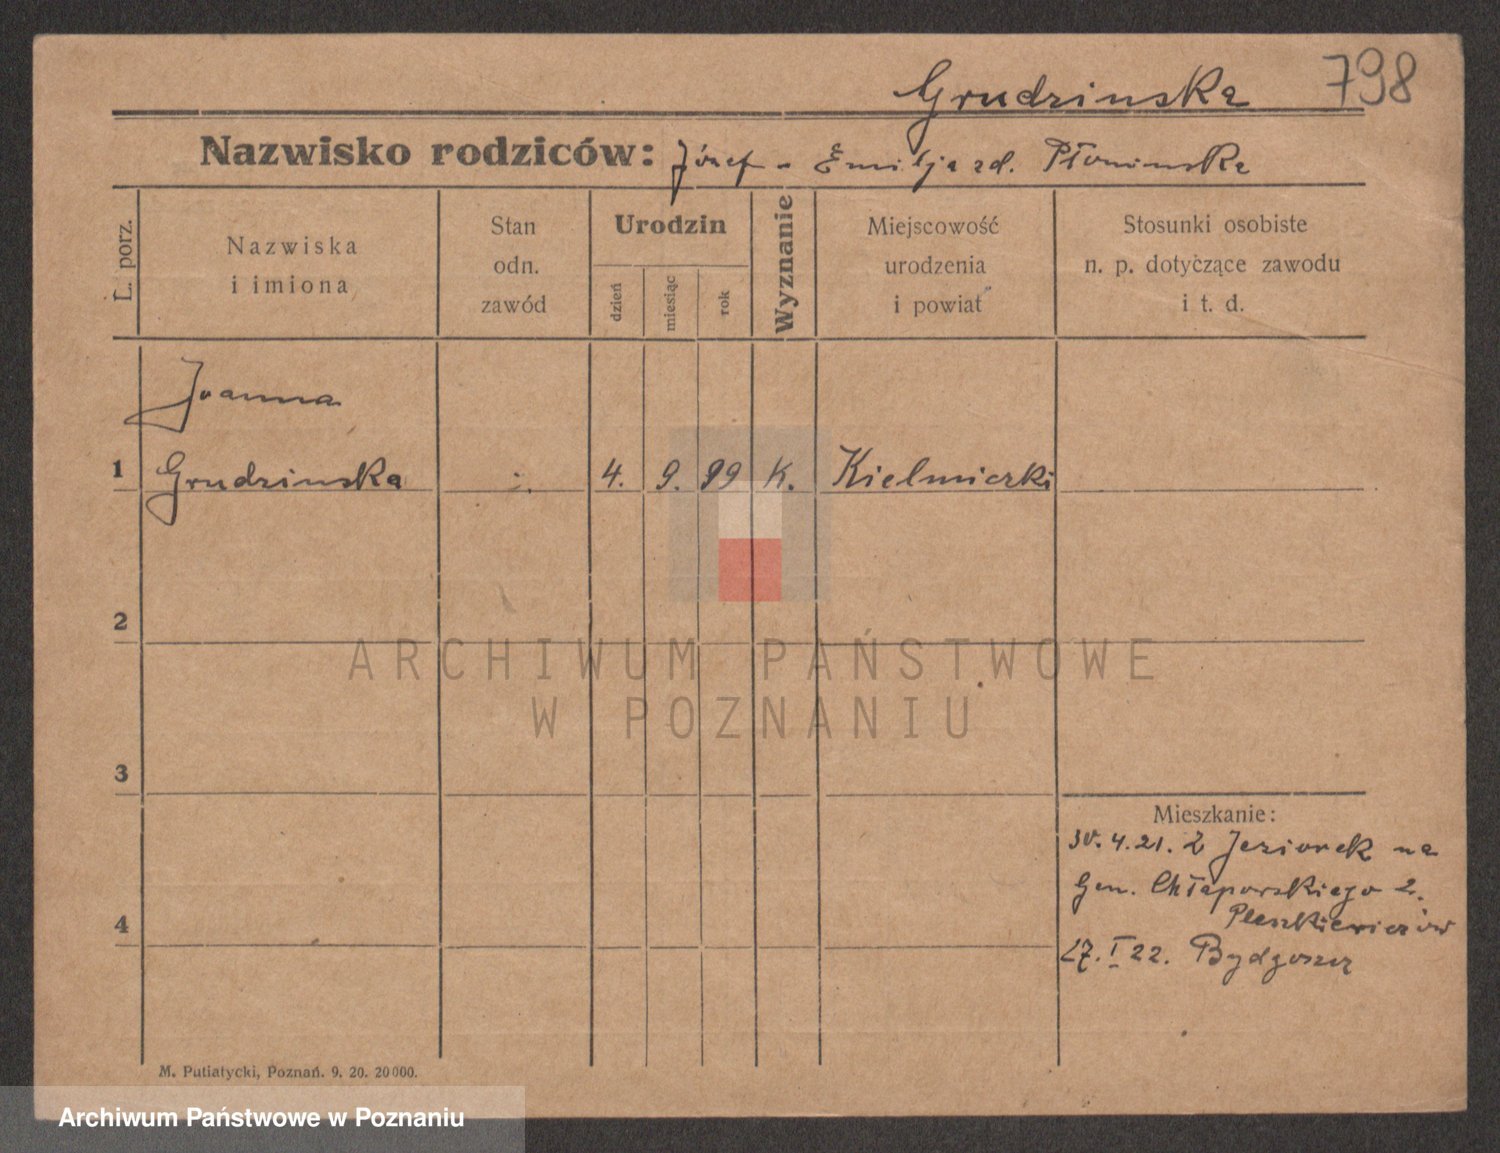 Grudzinska 798
Nazwisko rodziców: Józef - Emilja zd. Płominska
L. porz.
Nazwiska
i imiona
Stan
odn.
zawód
Urodzin
dzień
miesiąc
rok
Wyznanie
Miejscowość
urodzenia
i powiat
Stosunki osobiste
n. p. dotyczące zawodu
i t. d.
Joanna
1 Grudzinska 4. 9. 99 K. Kielmiczki
2
ARCHIWUM PAŃSTWOWE
W POZNANIU
3
Mieszkanie:
30.4.21. z Jeziorek na
Gen. Chłaporskiego 2.
Pleszkiewiczów
4
27. I 22. Bydgoszcz
M. Putiatycki, Poznań. 9. 20. 20000.
Archiwum Państwowe w Poznaniu